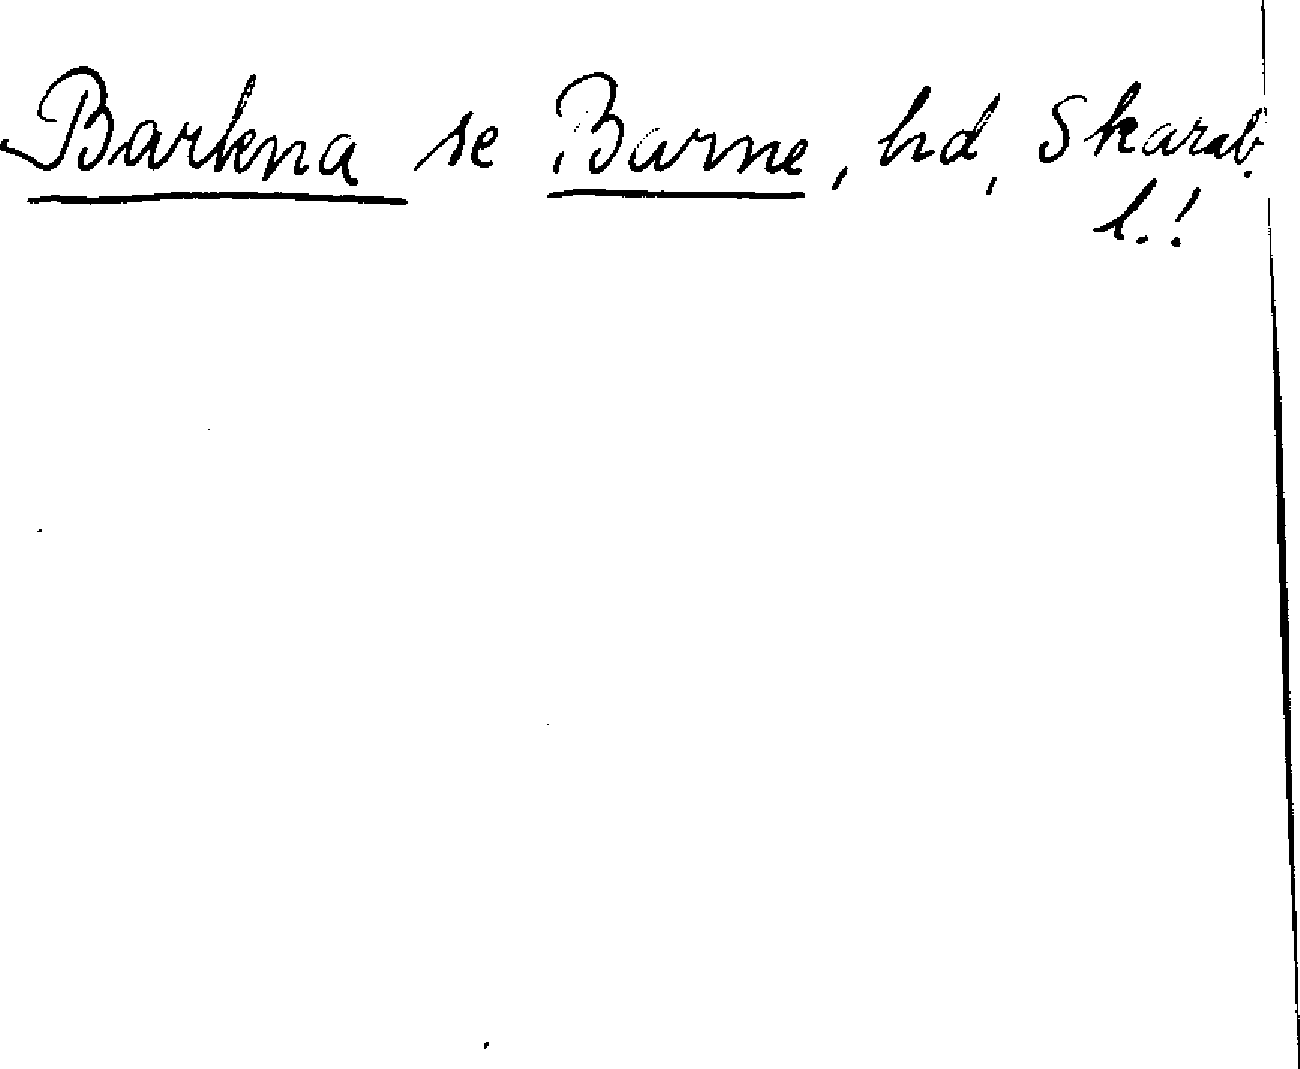 Barkna se Barne, hd, Skarab.
l.!